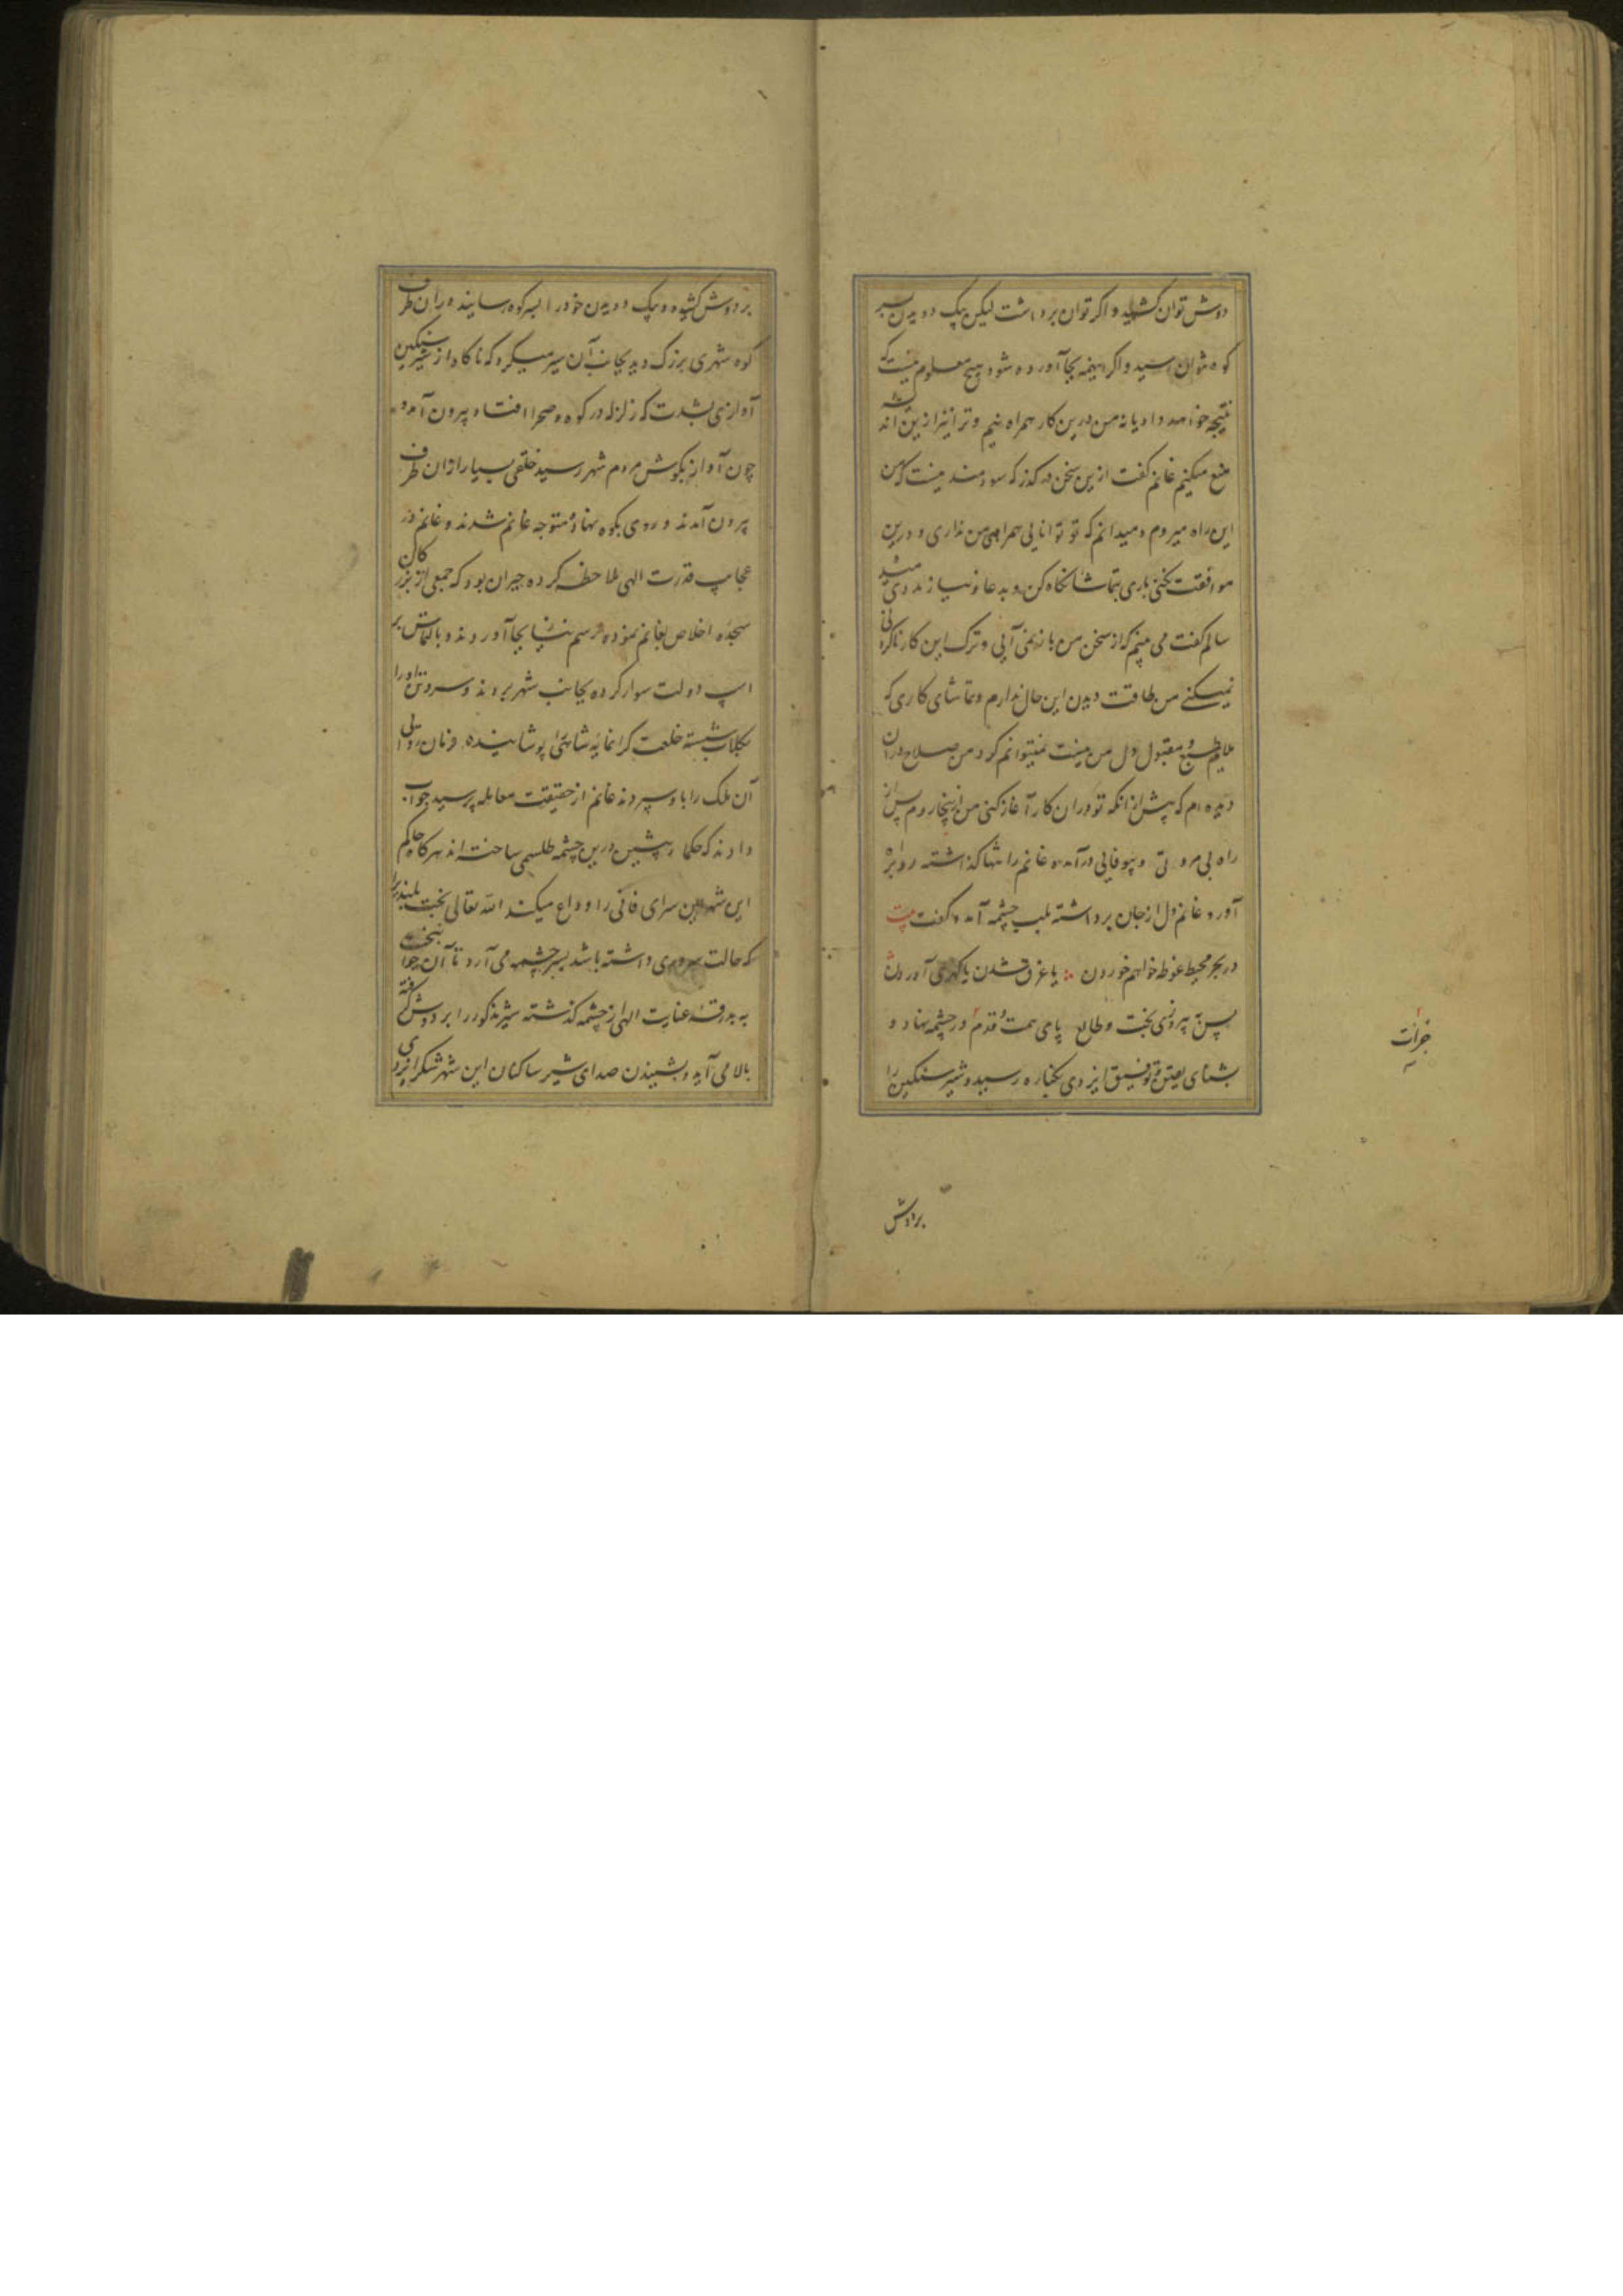 دوش توان کشید و اگر توان برداشت لیکن بیک دویدن بسر
کوه نتوان رسید و اگر اینهمه بجا آورده شود هیچ معلوم نیست که
نتیجه خواهد داد یا نه من درین کار همراه نیم و ترا نیز ازین اندیشه
منع میکنم غانم گفت ازین سخن در گذر که سودمند نیست که من
این راه میروم و میدانم که تو توانایی همراهی من نداری و درین
موافقت نکنی باری بتماشا نگاه کن و بدعا و نیاز مددی میده
سالم گفت می بینم که از سخن من باز نمی آیی و ترک این کار ناکردنی
نمیکنی من طاقت دیدن این حال ندارم و تماشای کاری که
ملایم طبع و مقبول دل من نیست نمیتوانم کرد من صلاح دران
دیده ام که پیش از انکه تو دران کار آغاز کنی من ازینجا روم پس از
راه بی مروتی و بیوفایی درآمده غانم را تنها گذاشته رو براه
آورد غانم دل از جان برداشته بلب چشمه آمد و گفت بیت
در بحر محیط غوطه خواهم خوردن ؞ یا غرق شدن یا گهری آوردن
پس به پیروزی بخت و طالع پای همت و قدم در چشمه نهاد و
بشنای یقین و توفیق ایزدی بکناره رسید و شیر سنگین را
جرات
بردوش
بر دوش کشیده و بیک دویدن خود را بسر کوه رسانیده و ران طرف
کوه شهری بزرگ دید بجانب آن سیر میکرد که ناگاه از شیر سنگین
آوازی بشدت که زلزله در کوه و صحرا افتاد بیرون آمد و
چون آواز بگوش مردم شهر رسید خلقی بسیار ازان طرف
بیرون آمدند و روی بکوه نهاده متوجه غانم شدند و غانم در
عجایب قدرت الهی ملاحظه کرده حیران بود که جمعی از بزرگان
سجده اخلاص بغانم نموده و رسم نیایش بجا آوردند و بالتماس بر
اسپ دولت سوار کرده بجانب شهر بردند و سر و تن او را
بگلاب شسته خلعت گرانمایه شاهی را پوشاینده فرمان روایی
آن ملک را باو سپردند غانم از حقیقت معامله پرسید جواب
دادند که حکماء پیشین درین چشمه طلسمی ساخته اند هر گاه حاکم
این شهر این سرای فانی را وداع میکند الله تعالی بخت بلند را
که حالت سروری داشته باشد بسر چشمه می آرد تا آن جوانبخت
به بدرقه عنایت الهی از چشمه گذشته شیر مذکور را بر دوش گرفته
بالا می آید و بشنیدن صدای شیر ساکنان این شهر شکر ایزدی